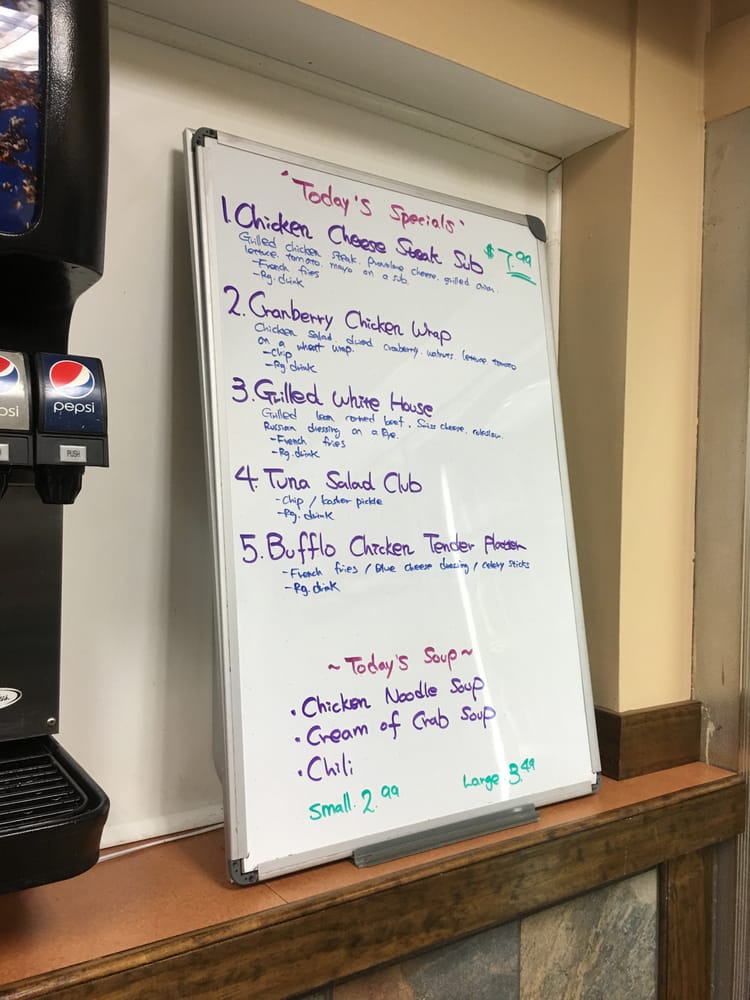 "Today's Specials"
1. Chicken Cheese Steak Sub $7.99
Grilled chicken steak. Provolone cheese. grilled onion.
lettuce. tomato. mayo on a sub.
-French fries
-Rg. drink
2. Cranberry Chicken Wrap
Chicken Salad. dried cranberry. walnuts. lettuce. tomato
on a wheat wrap.
-Chip
-Rg. drink
3. Grilled White House
Grilled lean corned beef. Swiss cheese. coleslaw.
Russian dressing on a Rye.
-French fries
-Rg. drink
4. Tuna Salad Club
-Chip / kosher pickle
-Rg. drink
5. Bufflo Chicken Tender Platter
-French fries / Blue cheese dressing / Celery sticks
-Rg. drink
~Today's Soup~
• Chicken Noodle Soup
• Cream of Crab Soup
• Chili
Small. 2.99 Large. 3.49
psi
pepsi
PUSH